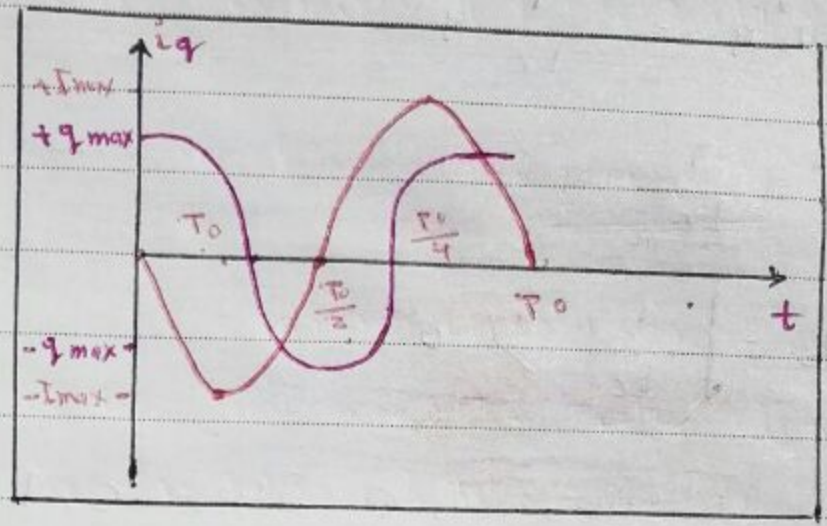 i q
+Imax
+q max
To
To
4
To
2
To
t
-q max -
-Imax -